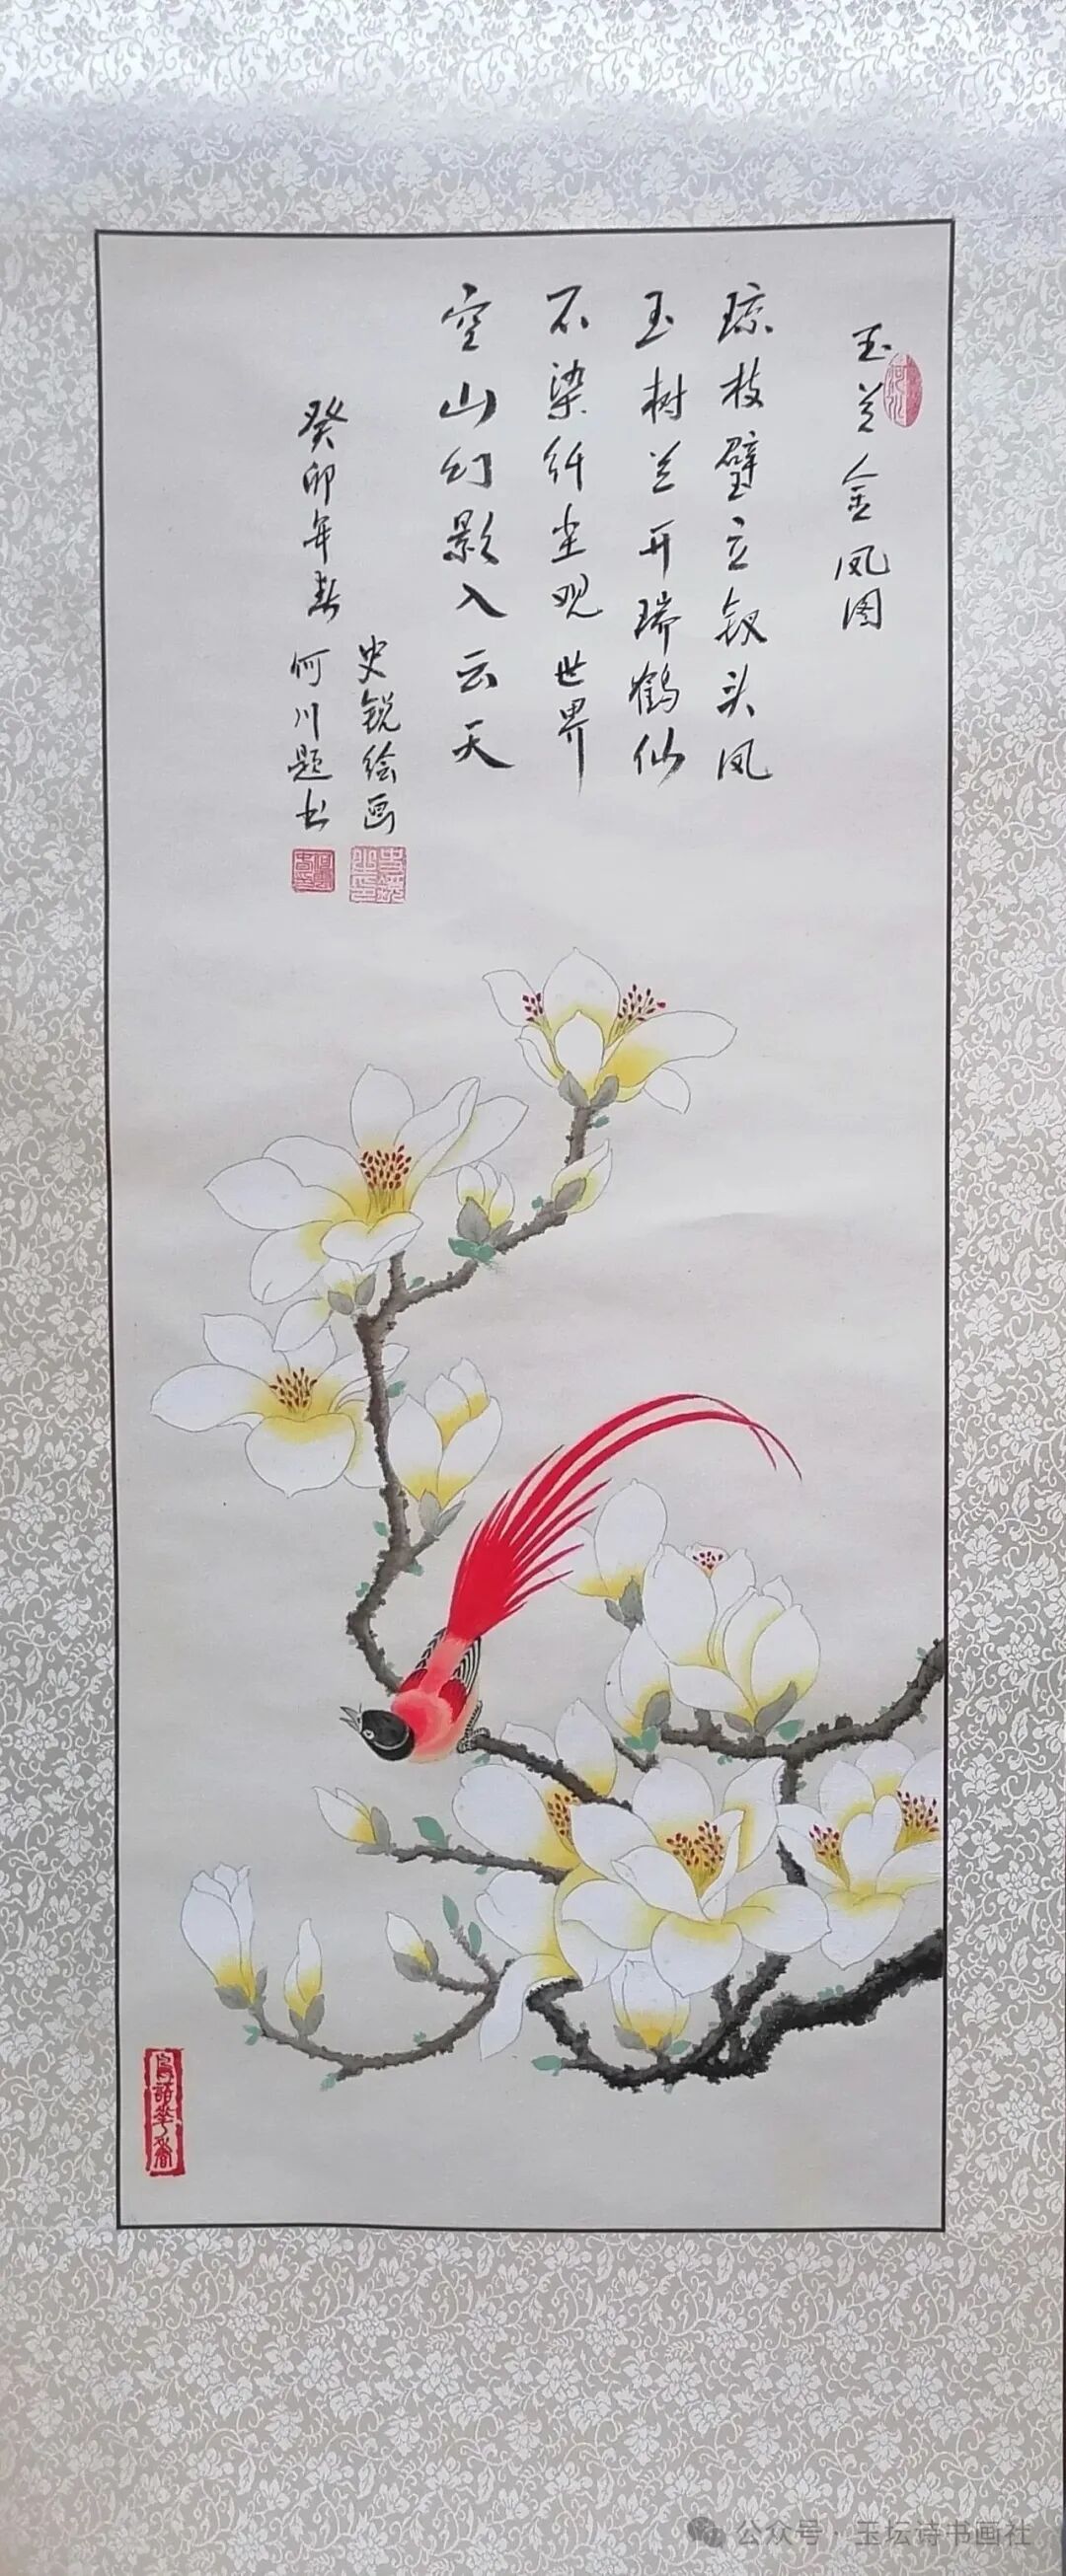 玉兰金凤图
琼枝壁立钗头凤
玉树兰开瑞鹤仙
不染纤尘观世界
空山幻影入云天
史锐绘画
癸卯年春 何川题书
鸟语花香
公众号·玉坛诗书画社